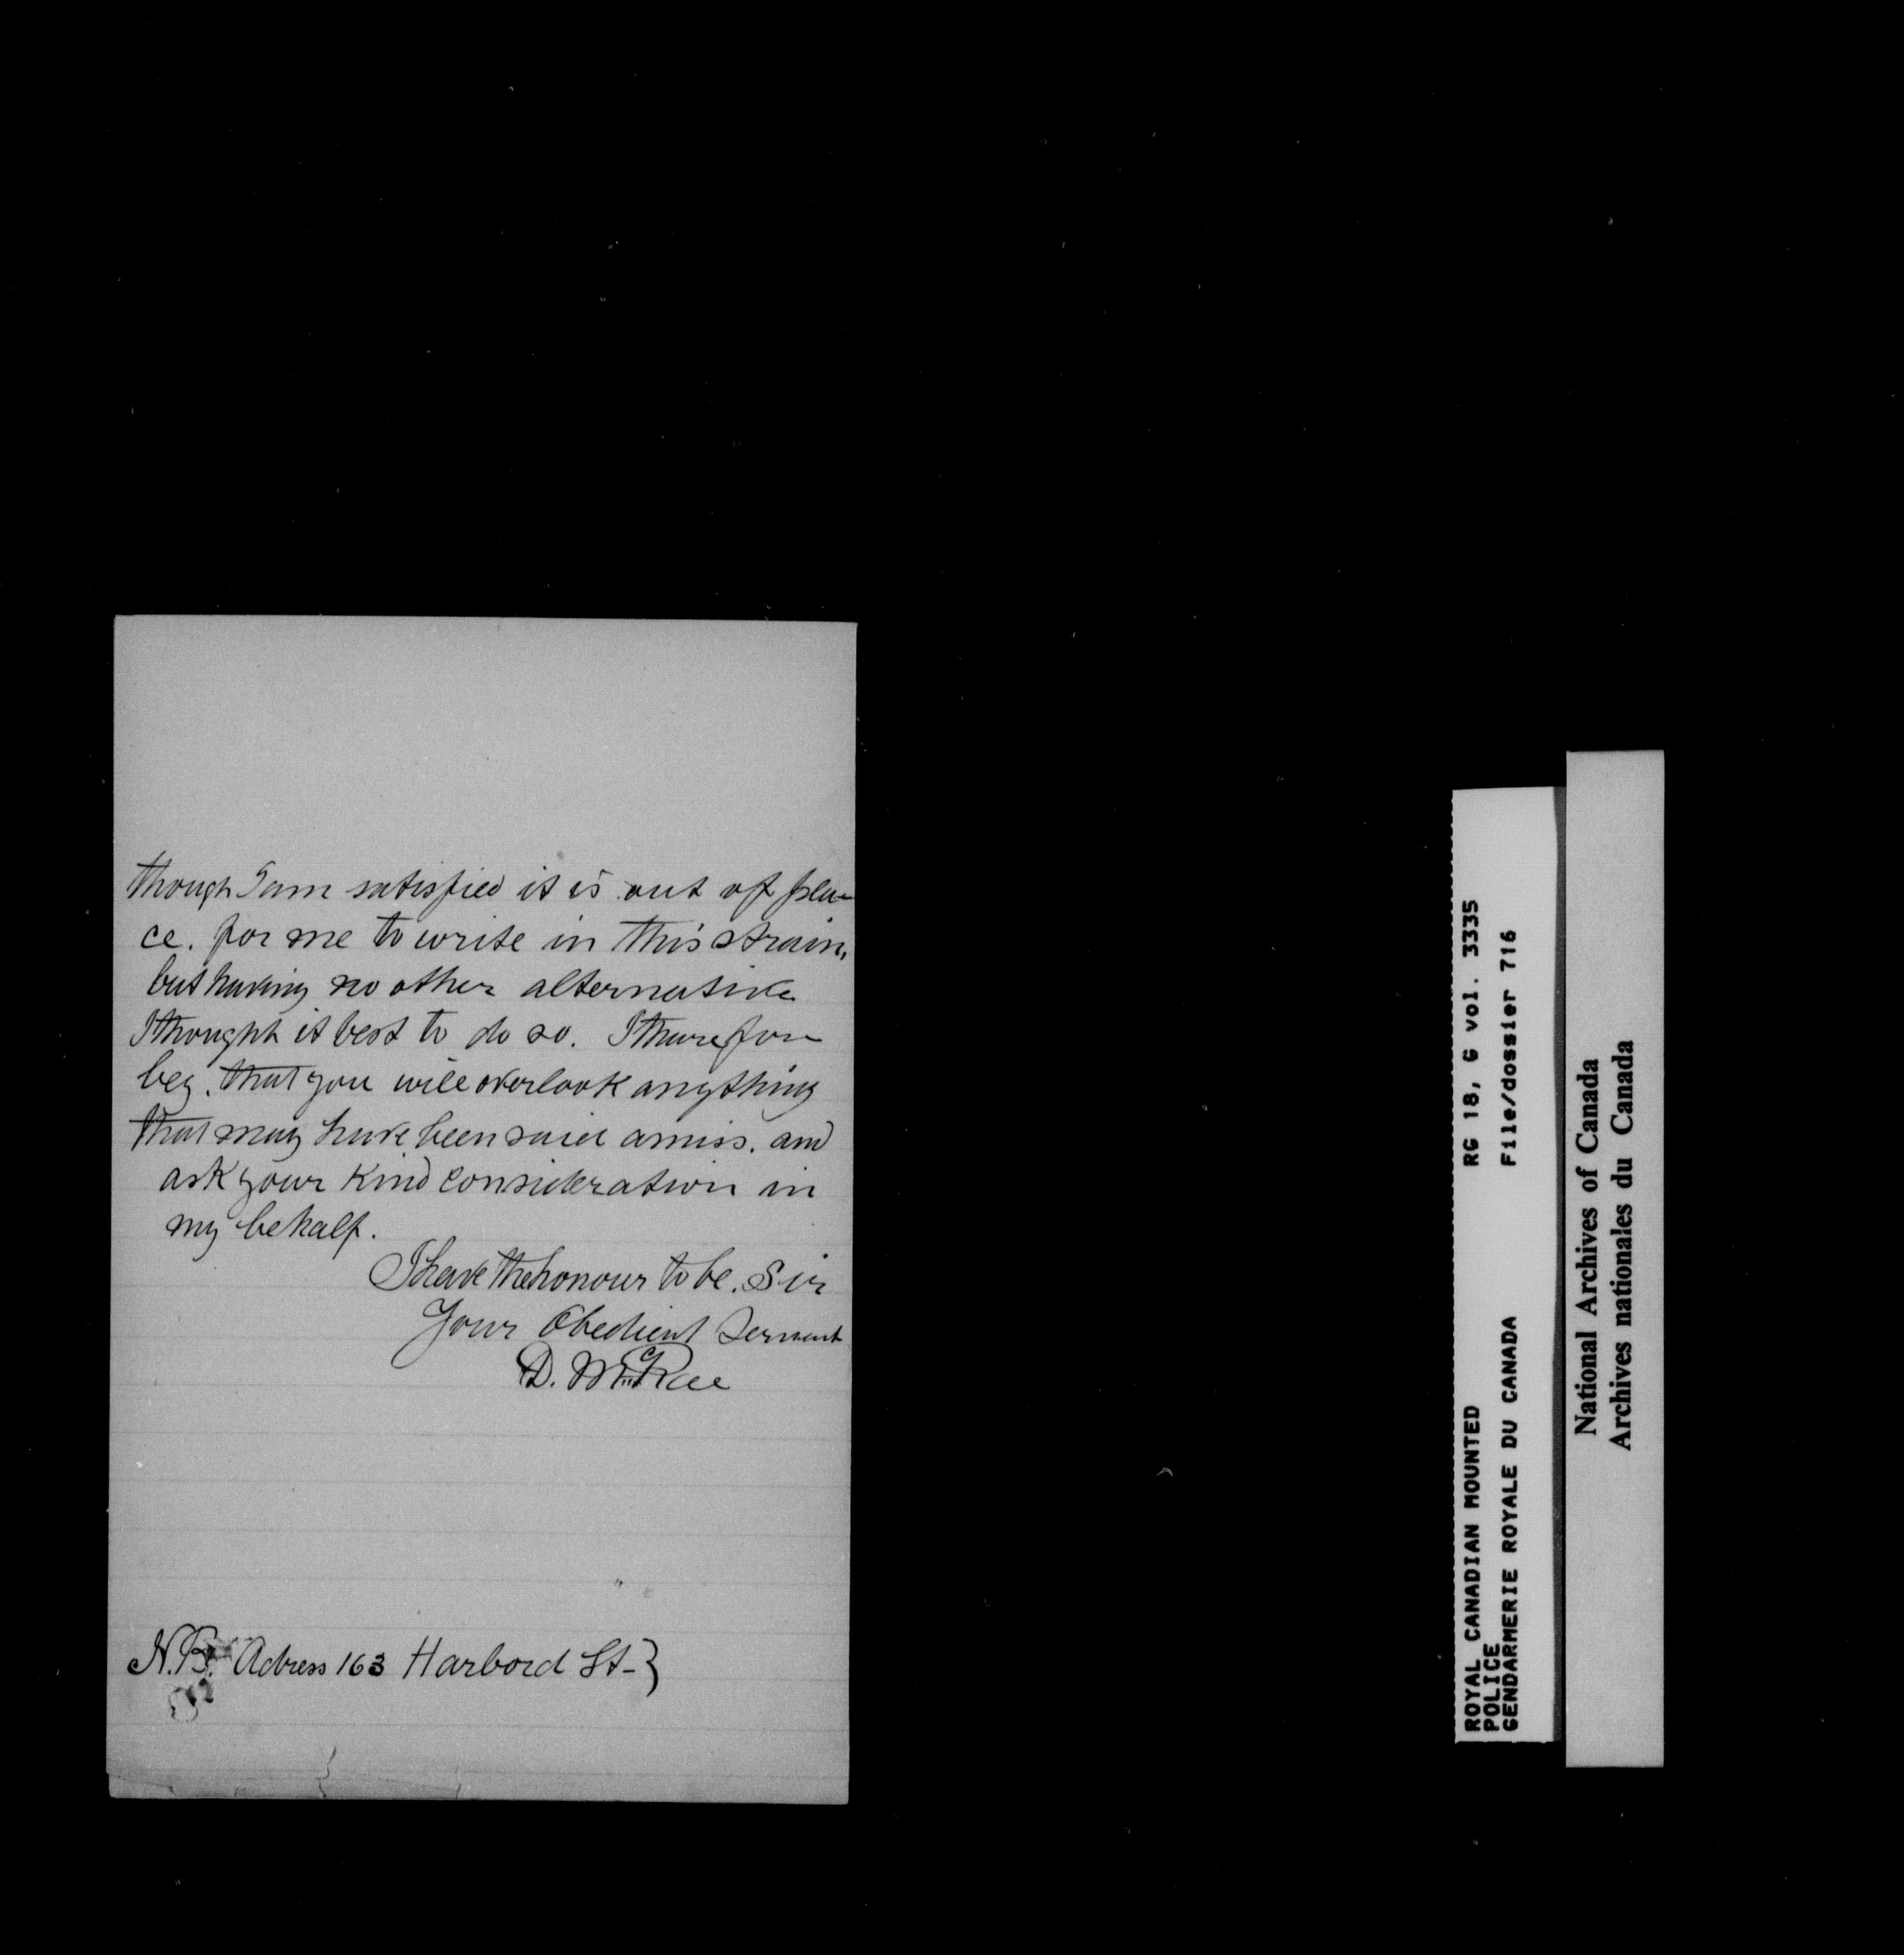 though I am satisfied it is out of pla-
ce. for me to write in this strain,
but having no other alternative
I thought it best to do so. I therefore
beg. that you will overlook anything
that may have been said amiss. and
ask your kind consideration in
my behalf.
I have the honour to be. Sir
Your Obedient Servant
D. McRae
N.B. Adress 163 Harbord St-}
ROYAL CANADIAN MOUNTED
POLICE
GENDARMERIE ROYALE DU CANADA
RG 18, G vol. 3335
File/dossier 716
National Archives of Canada
Archives nationales du Canada